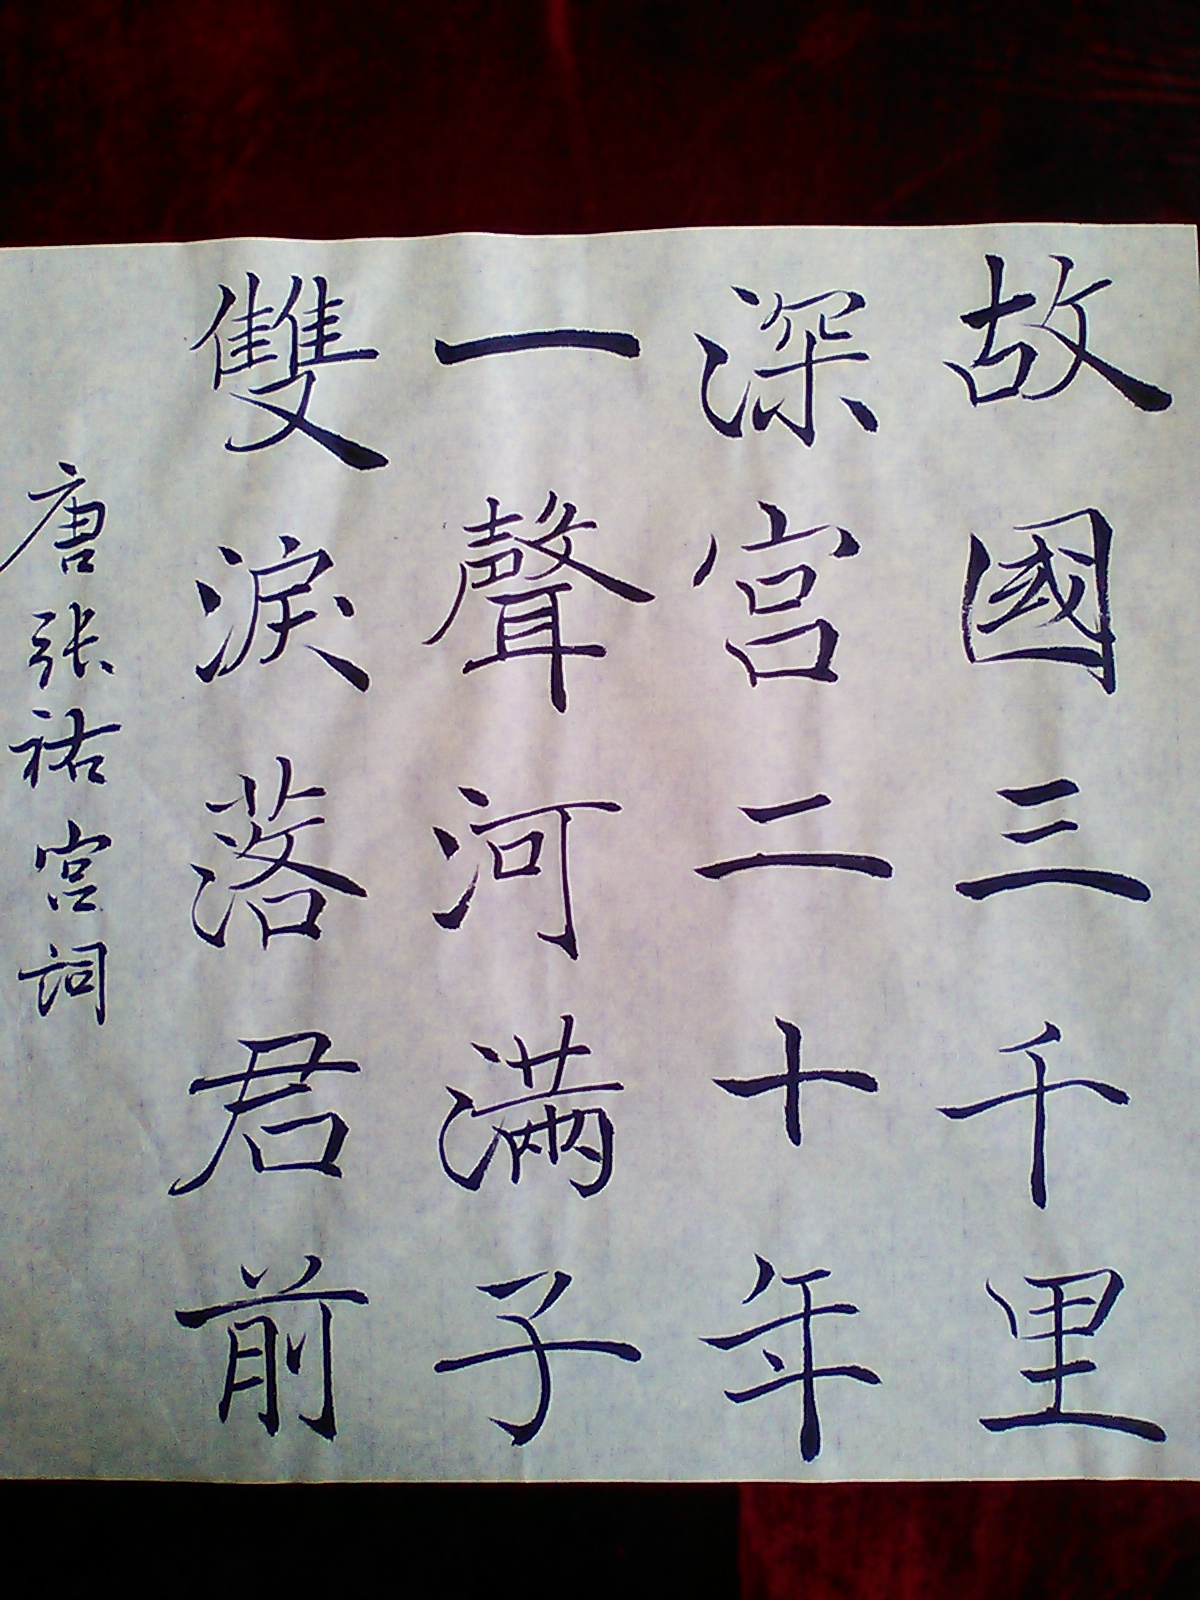 故國三千里
深宫二十年
一聲河满子
雙淚落君前
唐张祜宫词